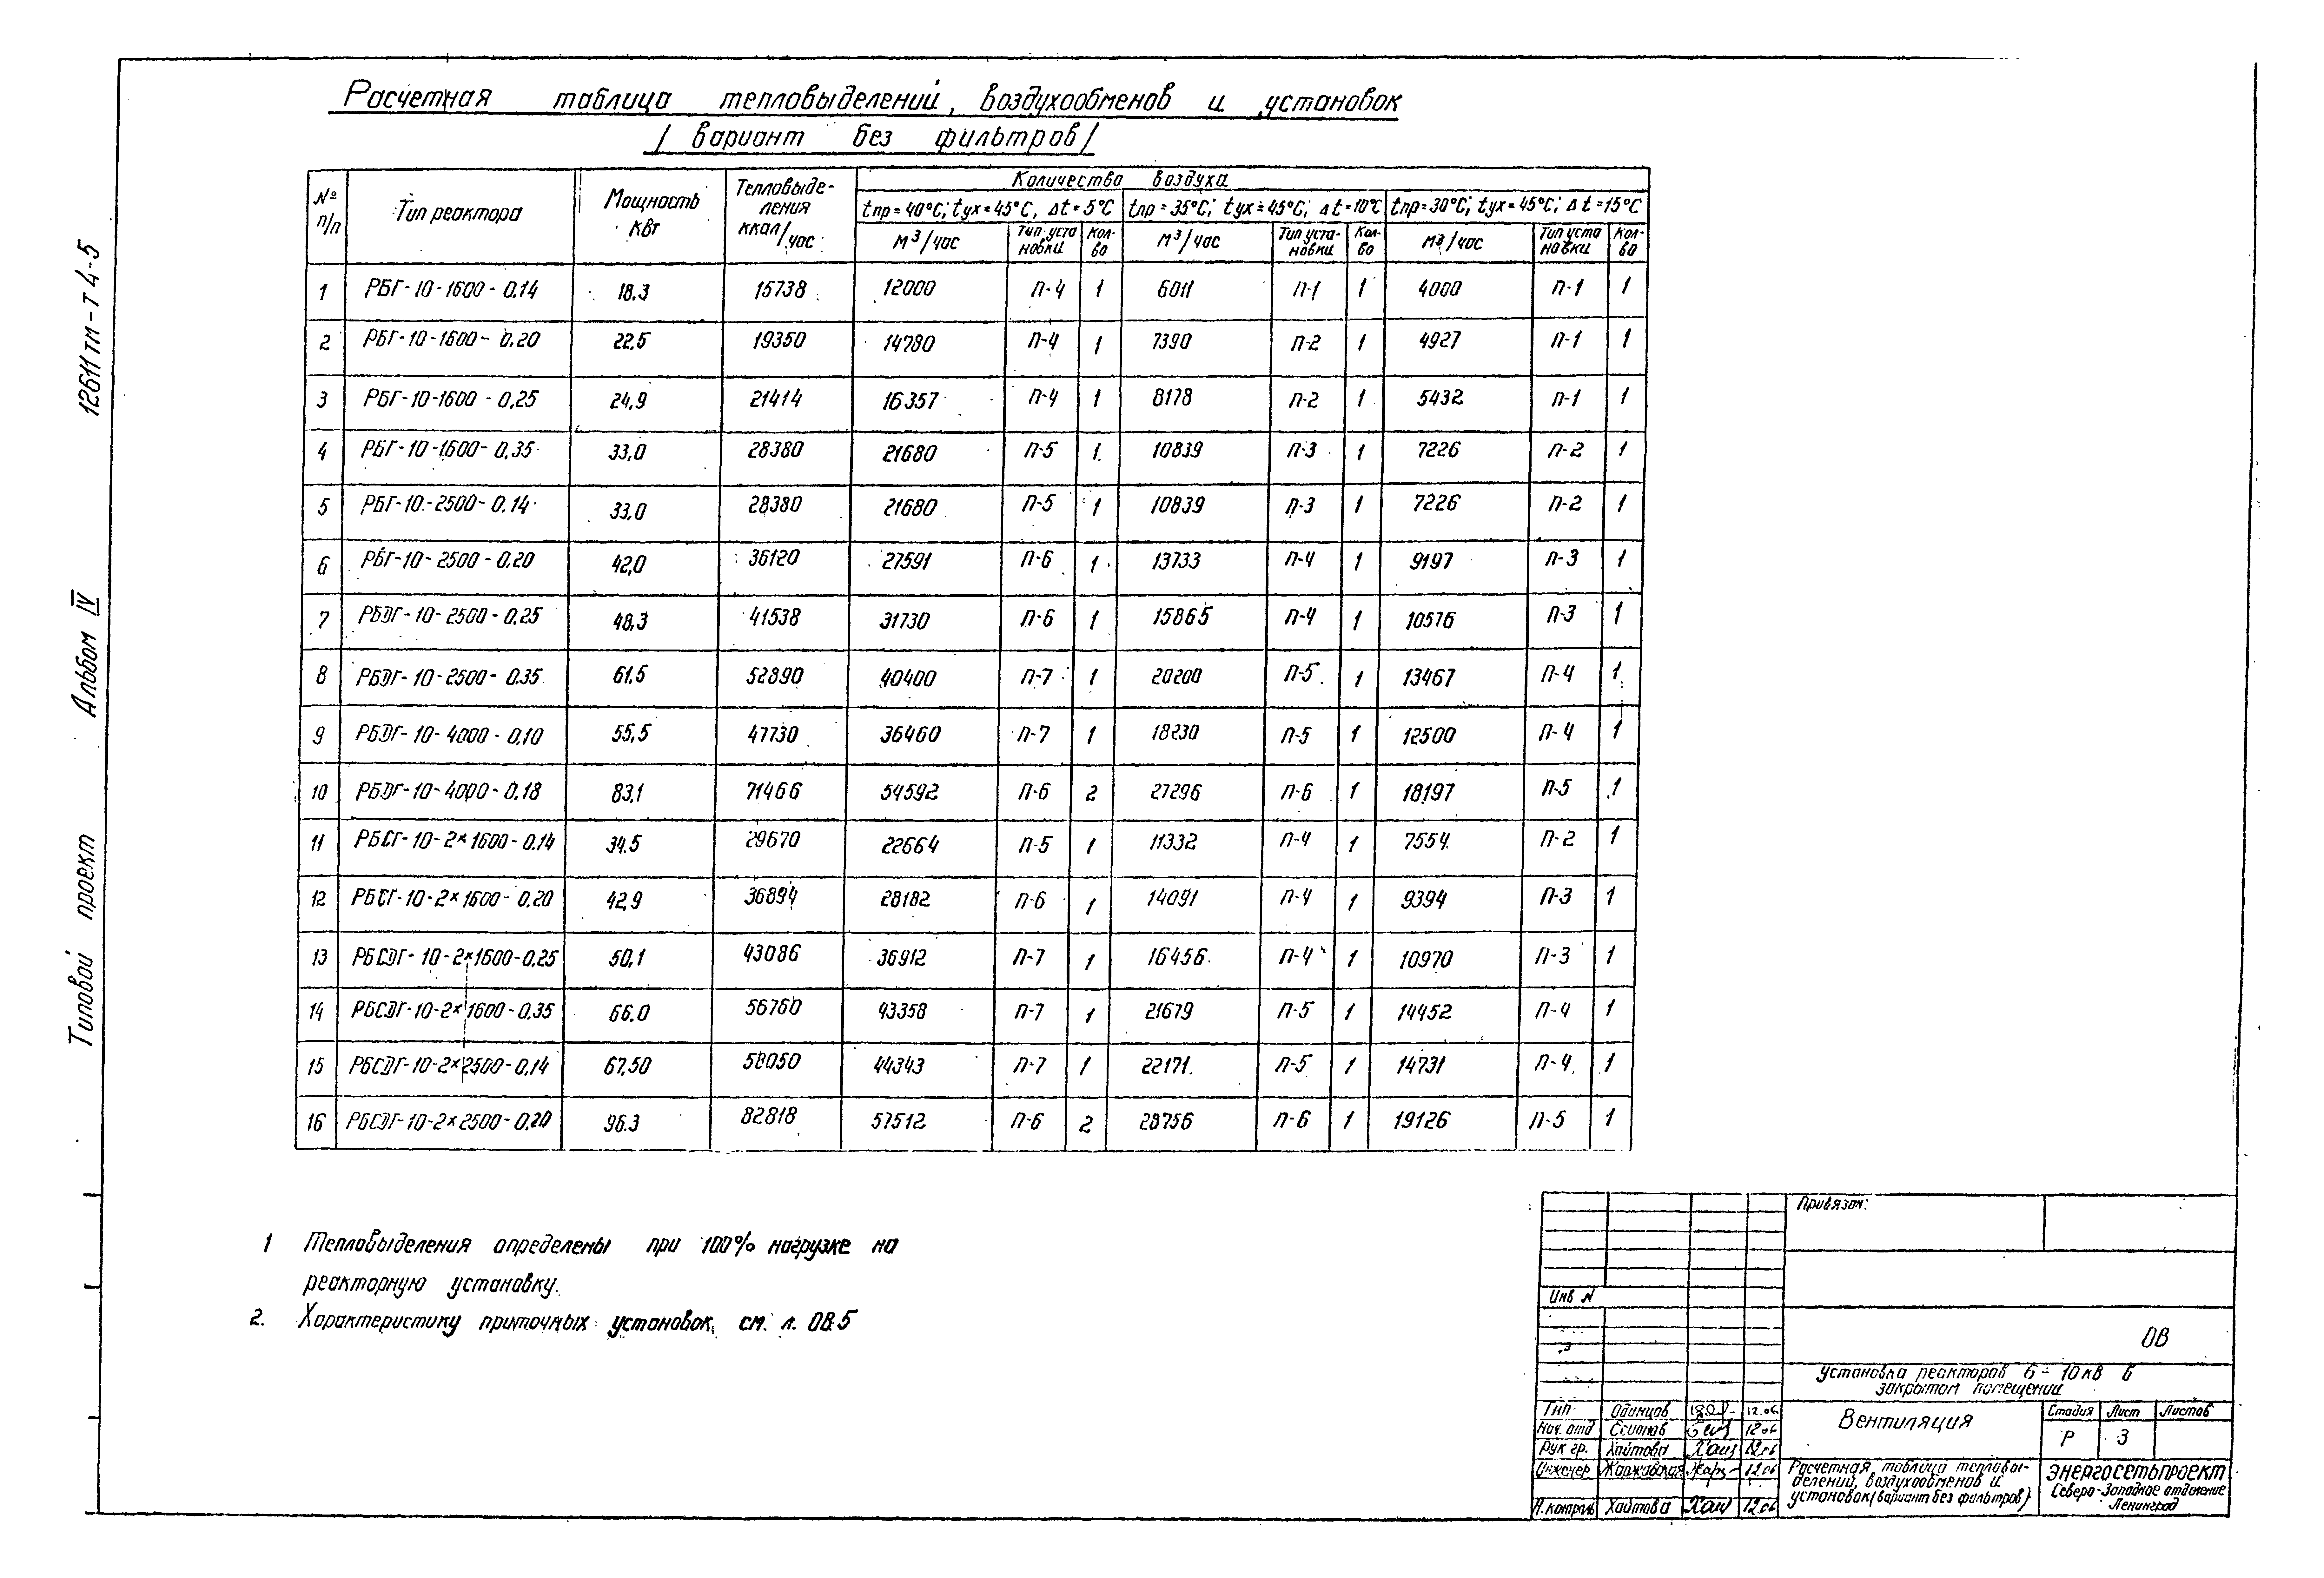 Расчетная таблица тепловыделений, воздухообменов и установок
/ вариант без фильтров /
№ п/п Тип реактора Мощность кВт Тепловыде- ления ккал/час Количество воздуха
tпр=40°С; tух=45°С, Δt=5°С tпр=35°С; tух=45°С; Δt=10°С tпр=30°С; tух=45°С; Δt=15°С
м³/час Тип уста новки Кол- во м³/час Тип уста- новки Кол- во м³/час Тип уста новки Кол- во
1 РБГ-10-1600-0.14 18.3 15738 12000 П-4 1 6011 П-1 1 4000 П-1 1
2 РБГ-10-1600-0.20 22.5 19350 14780 П-4 1 7390 П-2 1 4927 П-1 1
3 РБГ-10-1600-0,25 24,9 21414 16357 П-4 1 8178 П-2 1 5432 П-1 1
4 РБГ-10-1600-0,35 33,0 28380 21680 П-5 1 10839 П-3 1 7226 П-2 1
5 РБГ-10-2500-0,14 33,0 28380 21680 П-5 1 10839 П-3 1 7226 П-2 1
6 РБГ-10-2500-0.20 42,0 36120 27591 П-6 1 13733 П-4 1 9197 П-3 1
7 РБДГ-10-2500-0.25 48,3 41538 31730 П-6 1 15865 П-4 1 10576 П-3 1
8 РБДГ-10-2500-0.35 61,5 52890 40400 П-7 1 20200 П-5 1 13467 П-4 1
9 РБДГ-10-4000-0,10 55,5 47730 36460 П-7 1 18230 П-5 1 12500 П-4 1
10 РБДГ-10-4000-0,18 83,1 71466 54592 П-6 2 27296 П-6 1 18197 П-5 1
11 РБСГ-10-2×1600-0.14 34.5 29670 22664 П-5 1 11332 П-4 1 7554 П-2 1
12 РБСГ-10-2×1600-0,20 42,9 36894 28182 П-6 1 14091 П-4 1 9394 П-3 1
13 РБСДГ-10-2×1600-0,25 50,1 43086 36912 П-7 1 16456 П-4 1 10970 П-3 1
14 РБСДГ-10-2×1600-0,35 66,0 56760 43358 П-7 1 21679 П-5 1 14452 П-4 1
15 РБСДГ-10-2×2500-0,14 67,50 58050 44343 П-7 1 22171 П-5 1 14731 П-4 1
16 РБСДГ-10-2×2500-0,20 96.3 82818 57512 П-6 2 28756 П-6 1 19126 П-5 1
1 Тепловыделения определены при 100% нагрузке на
реакторную установку.
2. Характеристику приточных установок см. л. ОВ.5
12611тм-т4-5
Альбом IV
Типовой проект
Привязан:
Инв N
ОВ
Установка реакторов 6-10кВ в
закрытом помещении
ГИП Одинцов 12.06
Нач. отд 12.06
Рук гр. Хаитова 12.06
Инженер 12.06
Н.контроль Хаитова 12.06
Вентиляция
Стадия Лист Листов
Р 3
Расчетная таблица тепловы-
делений, воздухообменов и
установок (вариант без фильтров)
ЭНЕРГОСЕТЬПРОЕКТ
Северо-Западное отделение
Ленинград